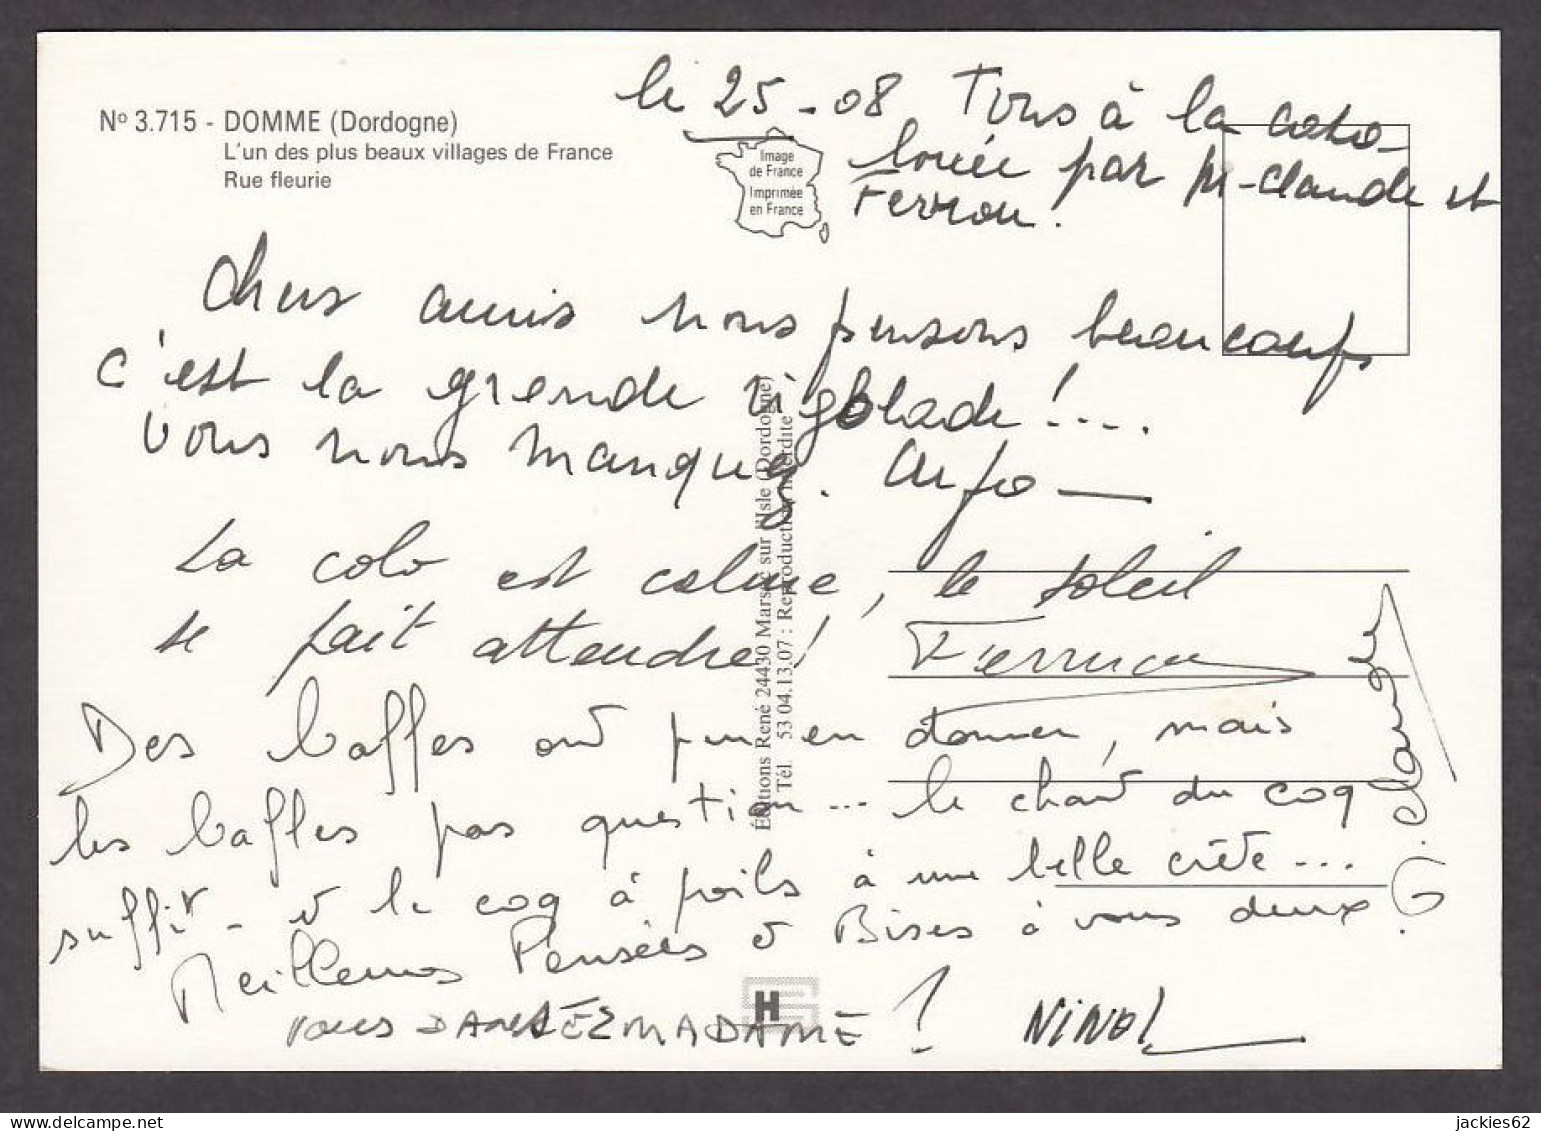 Nº 3.715 - DOMME (Dordogne)
L'un des plus beaux villages de France
Rue fleurie
Image
de France
Imprimée
en France
le 25-08 Tous à la colo-
louée par M-Claude et
Ferrou.
Chers amis nous pensons beaucoup
c'est la grande rigolade!....
vous nous manquez.
La colo est calme, le soleil
se fait attendre!
Des baffes ont pu en donner, mais
les baffles pas question... le chant du coq
suffit - et le coq à poils à une belle crête...
Meilleures Pensées et Bises à vous deux
G.
VOUS DANSÉEZ MADAME!
NINOL
Éditions René 24430 Marsac sur l'Isle (Dordogne)
Tél. 53.04.13.07 : Reproduction interdite
jackies62